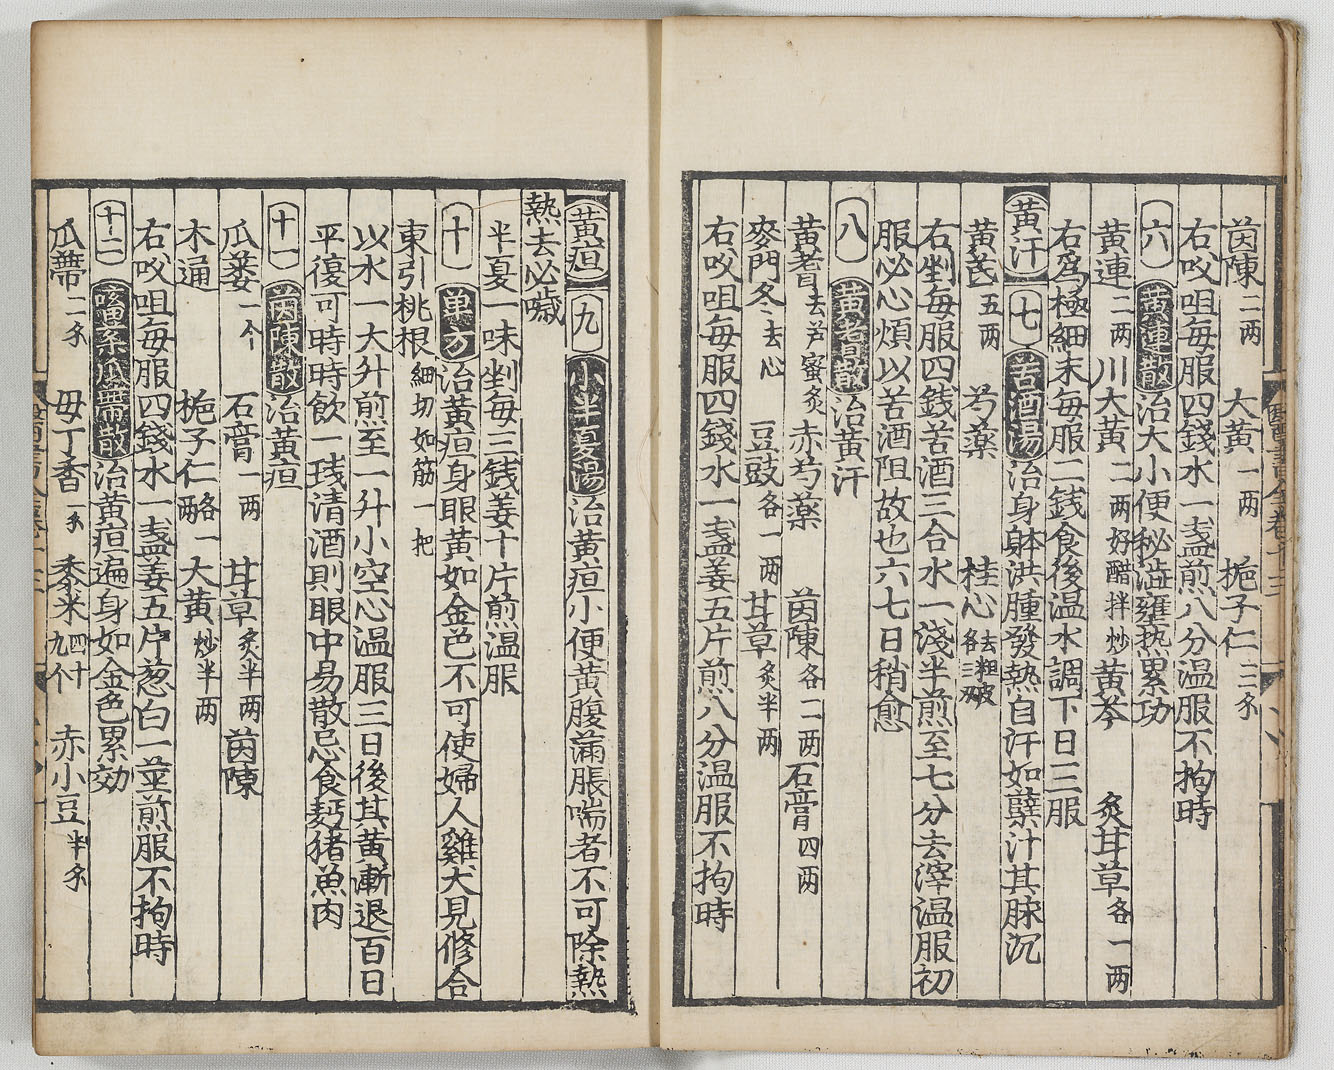 茵陳二两 大黄一两 梔子仁二分
右㕮咀每服四錢水一盞煎八分温服不拘時
六 黄連散治大小便秘澁壅热累功
黄連二两 川大黄二两好醋拌炒 黄芩 炙甘草各一两
右爲極細末每服二錢食後温水調下日三服
黄汗 七 苦酒湯治身躰洪腫發熱自汗如蘗汁其脉沉
黄芪五两 芍藥 桂心去粗皮各三两
右剉每服四銭苦酒三合水一盞半煎至七分去滓温服初
服必心煩以苦酒阻故也六七日稍愈
八 黄耆散治黄汗
黄耆去芦蜜炙 赤芍藥 茵陳各二两 石膏四两
麥門冬去心 豆豉各一两 甘草炙半两
右㕮咀每服四錢水一盞姜五片煎八分温服不拘時
黄疸 九 小半夏湯治黄疸小便黄腹滿脹喘者不可除熱
熱去必噦
半夏一味剉每三錢姜十片煎温服
十 单方治黄疸身眼黄如金色不可使婦人雞犬見修合
東引桃根細切如筋一把
以水一大升煎至一升小空心温服三日後其黄漸退百日
平復可時時飲一琖清酒則眼中易散忌食麪猪魚肉
十一 茵陳散治黄疸
瓜蔞一个 石膏一两 甘草炙半两 茵陳
木通 梔子仁各一两 大黄炒半两
右㕮咀每服四錢水一盞姜五片葱白一莖煎服不拘時
十二 瓜蔕散治黄疸遍身如金色累効
瓜蔕二分 毋丁香一分 黍米四十九个 赤小豆半分